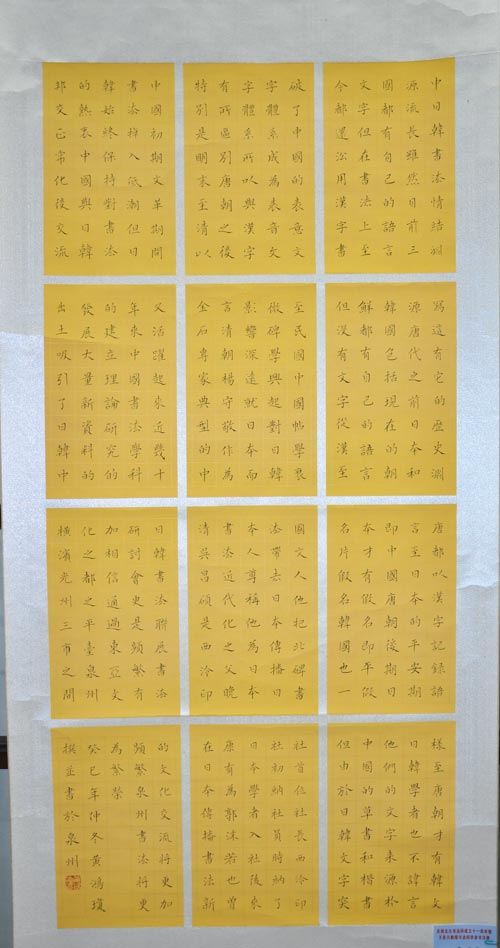 中日韓書法情結淵
源流長雖然目前三
國都有自己的語言
文字但在書法上至
今都還沿用漢字書
寫這有它的歷史淵
源唐代之前日本和
韓國包括現在的朝
鮮都有自己的語言
但沒有文字從漢至
唐都以漢字記錄語
言至日本的平安期
即中國唐朝後期日
本才有假名即平假
名片假名韓國也一
樣至唐朝才有韓文
日韓學者也不諱言
他們的文字來源於
中國的草書和楷書
但由於日韓文字突
破了中國的表意文
字體系成為表音文
字體系所以與漢字
有所區別唐朝之後
特別是明末至清以
至民國中國帖學衰
微碑學興起對日韓
影響深遠就日本而
言清朝楊守敬作為
金石專家典型的中
國文人他把北碑書
法帶去日本傳播日
本人尊稱他為日本
書法近代化之父晚
清吳昌碩是西泠印
社首任社長西泠印
社初納社員時納了
日本學者入社後來
康有為郭沫若也曾
在日本傳播書法新
中國初期文革期間
書法掉入低潮但日
韓始終保持對書法
的熱衷中國與日韓
邦交正常化後交流
又活躍起來近幾十
年來中國書法學科
的建立理論研究的
發展大量新資料的
出土吸引了日韓中
日韓書法聯展書法
研討會更是頻繁有
加相信通過東亞文
化之都之平臺泉州
橫濱光州三市之間
的文化交流將更加
頻繁泉州書法將更
為繁榮
癸巳年仲冬黃鴻瓊
撰並書於泉州